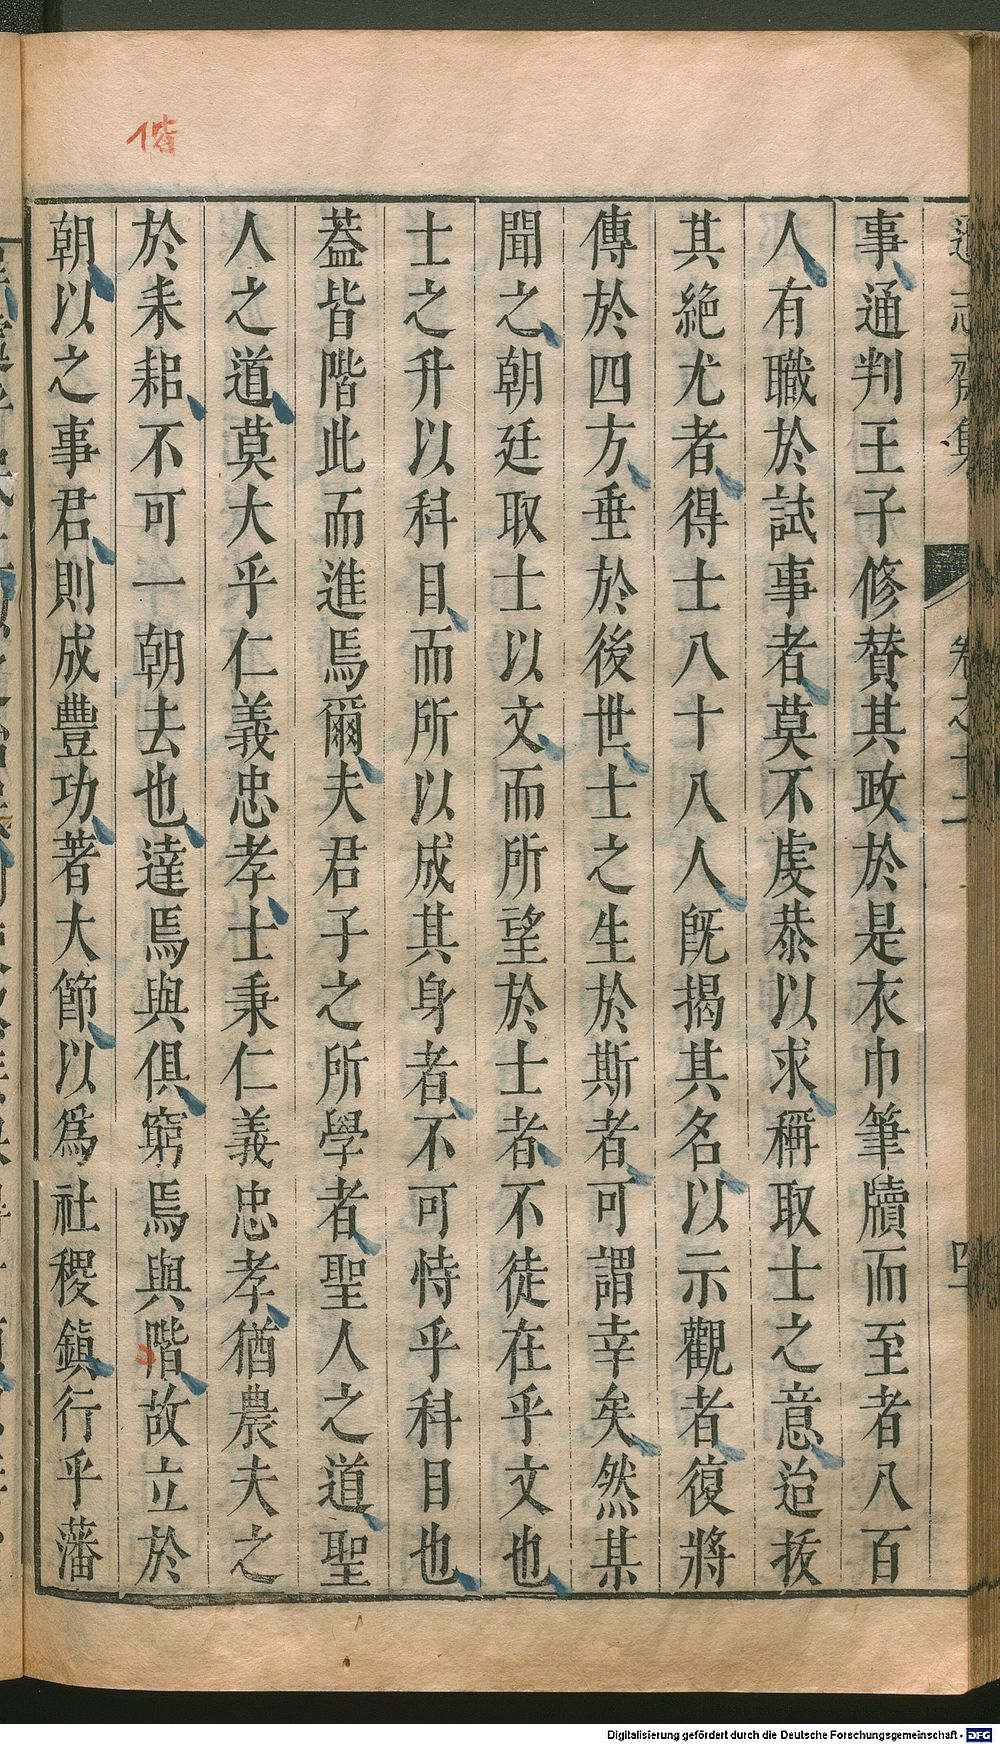 偕
遜志齋集 卷之十二 四
事通判王子修賛其政於是衣巾筆牘而至者八百
人有職於試事者莫不虔恭以求稱取士之意迨拔
其絶尤者得士八十八人既揭其名以示觀者復將
傳於四方垂於後世士之生於斯者可謂幸矣然某
聞之朝廷取士以文而所望於士者不徒在乎文也
士之升以科目而所以成其身者不可恃乎科目也
葢皆階此而進焉爾夫君子之所學者聖人之道聖
人之道莫大乎仁義忠孝士秉仁義忠孝猶農夫之
於耒耜不可一朝去也達焉與俱窮焉與階故立於
朝以之事君則成豐功著大節以爲社稷鎮行乎藩
Digitalisierung gefördert durch die Deutsche Forschungsgemeinschaft - DFG